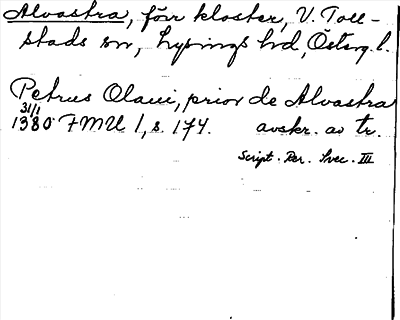 Alvastra, förr kloster, V. Toll-
stads sn, Lysings hd, Österg. l.
Petrus Olaui, prior de Alvastra
31/1
1380 FMU 1, s. 174. avskr. av tr.
Script. Rer. Svec. III